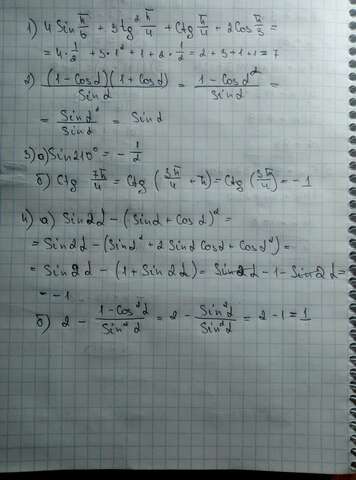 1) 4 Sin π/6 + 3 tg² π/4 + Ctg π/4 + 2 Cos π/3 =
= 4 · 1/2 + 3 · 1² + 1 + 2 · 1/2 = 2 + 3 + 1 + 1 = 7
2) (1 - Cos α)(1 + Cos α) / Sin α = 1 - Cos α² / Sin α =
= Sin α² / Sin α = Sin α
3) а) Sin 210° = - 1/2
б) Ctg 7π/4 = Ctg (3π/4 + π) = Ctg (3π/4) = - 1
4) а) Sin 2α - (Sin α + Cos α)² =
= Sin 2α - (Sin α² + 2 Sin α Cos α + Cos α²) =
= Sin 2α - (1 + Sin 2α) = Sin 2α - 1 - Sin 2α =
= - 1
б) 2 - 1 - Cos² α / Sin² α = 2 - Sin² α / Sin² α = 2 - 1 = 1